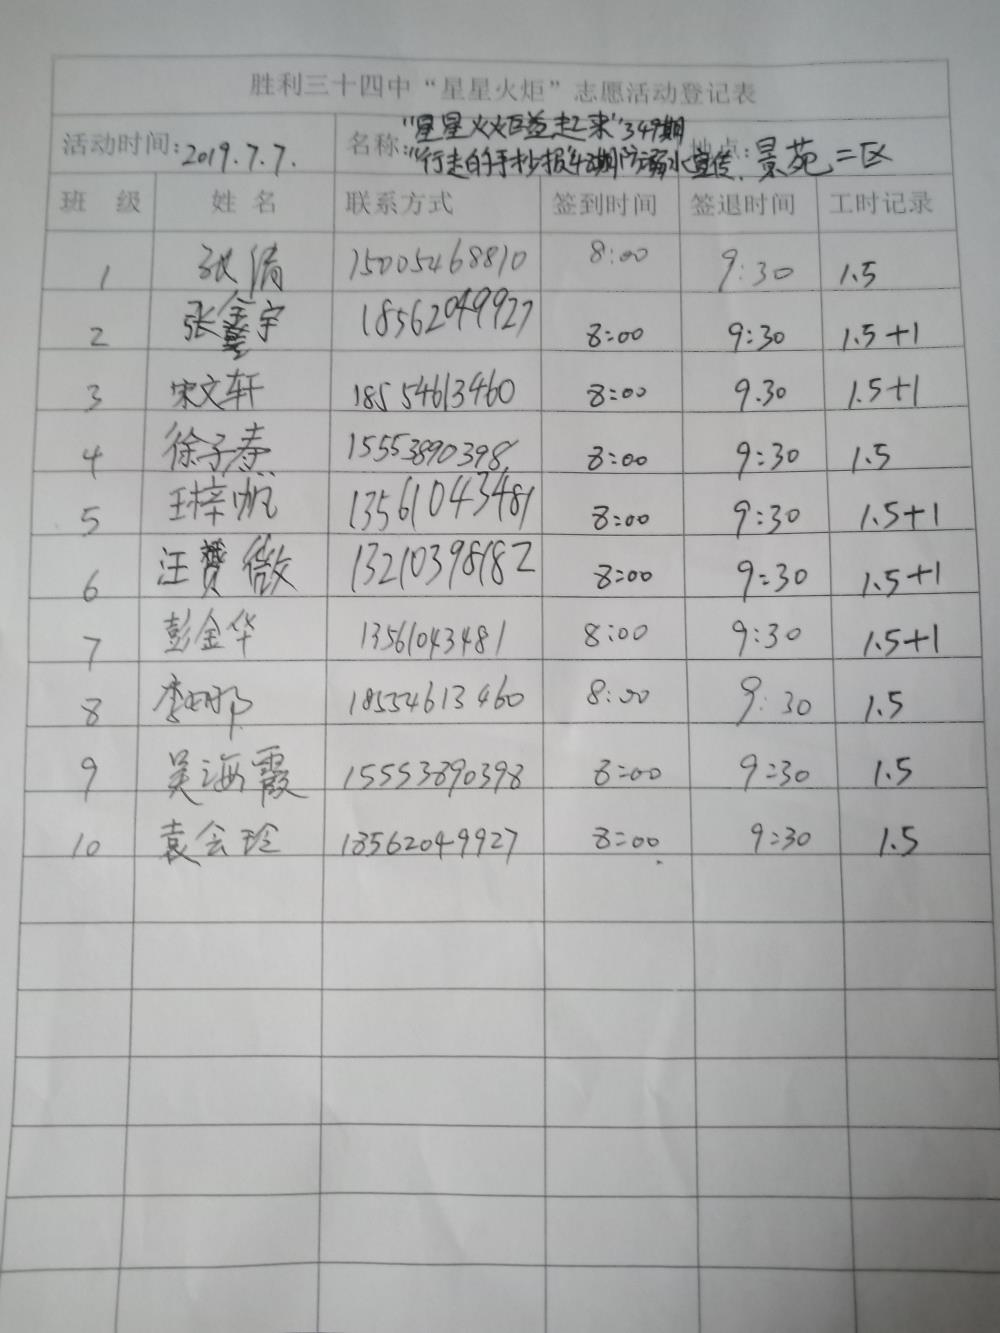 胜利三十四中“星星火炬”志愿活动登记表
活动时间:2019.7.7. 名称:“星星火炬益起来”349期
“行走的手抄报”期防溺水宣传 地点:景苑二区
班 级 姓 名 联系方式 签到时间 签退时间 工时记录
1 张清 15005468810 8:00 9:30 1.5
2 张宇 18562049927 8:00 9:30 1.5+1
3 宋文轩 18554613460 8:00 9.30 1.5+1
4 徐子 15553890398 8:00 9:30 1.5
5 王梓帆 13561043481 8:00 9:30 1.5+1
6 汪赟微 13210398182 8:00 9:30 1.5+1
7 彭金华 13561043481 8:00 9:30 1.5+1
8 李娜 18554613460 8:00 9:30 1.5
9 吴海霞 15553890398 8:00 9:30 1.5
10 袁会玲 18562049927 8:00 9:30 1.5